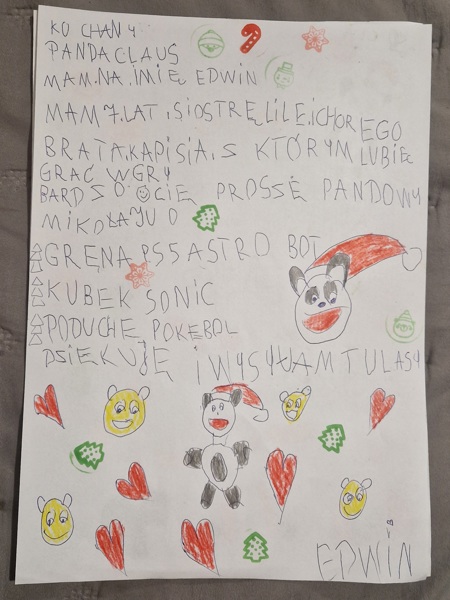 KOCHANY
PANDACLAUS
MAM.NA.IMIĘ EDWIN
MAM 7.LAT.SIOSTRĘ LILE.ICHOREGO
BRATA.KAPISIA.S KTÓRYM LUBIĘ
GRAĆ WGRY
BARDSO CIĘ PROSSĖ PANDOWY
MIKOŁAJU O
GRĘNA PS5 ASTRO BOT
KUBEK SONIC
PODUCHE POKEBOL
DSIEKUJE I WYSYŁAM TULASY
EDWIN